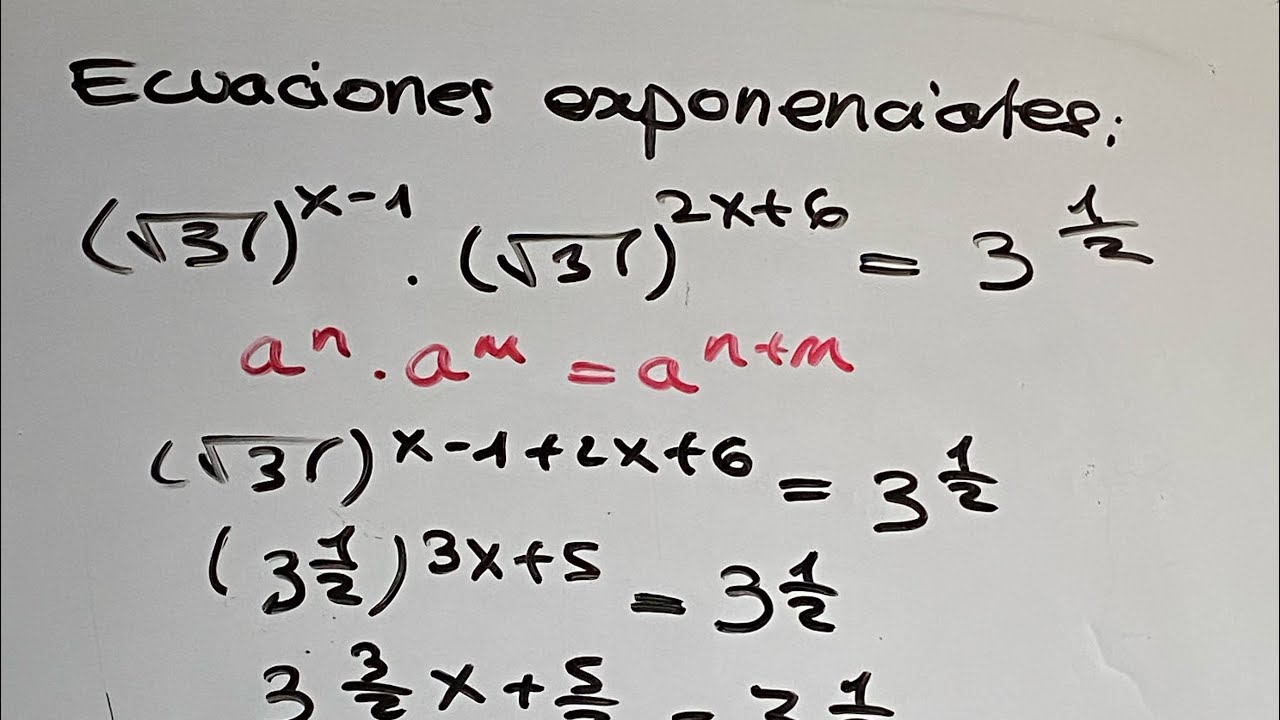 Ecuaciones exponenciales:
(√3)^{x-1} · (√3)^{2x+6} = 3^{1/2}
a^n · a^m = a^{n+m}
(√3)^{x-1+2x+6} = 3^{1/2}
(3^{1/2})^{3x+5} = 3^{1/2}
3^{3/2 x + 5/2} = 3^{1/2}